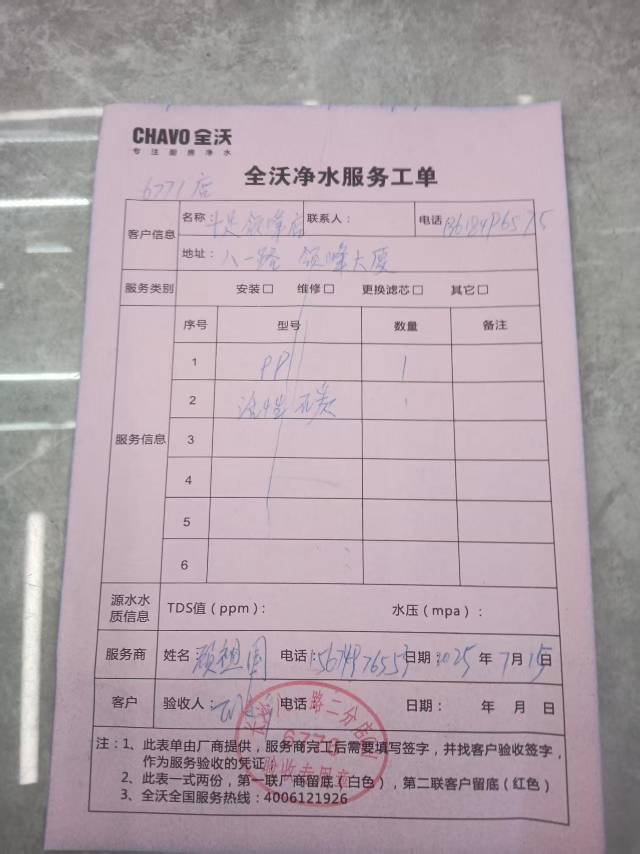 CHAVO 全沃
专注厨房净水
全沃净水服务工单
6771店
客户信息 名称 领峰店 联系人： 电话
地址： 八一路 领峰大厦
服务类别 安装□ 维修□ 更换滤芯□ 其它□
服务信息 序号 型号 数量 备注
1 PP 1
2 活性碳 1
3
4
5
6
源水水质信息 TDS值（ppm）： 水压（mpa）：
服务商 姓名 电话 日期：2025 年 7 月 15 日
客户 验收人： 电话 日期： 年 月 日
注：1、此表单由厂商提供，服务商完工后需要填写签字，并找客户验收签字，
作为服务验收的凭证
2、此表一式两份，第一联厂商留底（白色），第二联客户留底（红色）
3、全沃全国服务热线：4006121926
路二分店
验收专用章